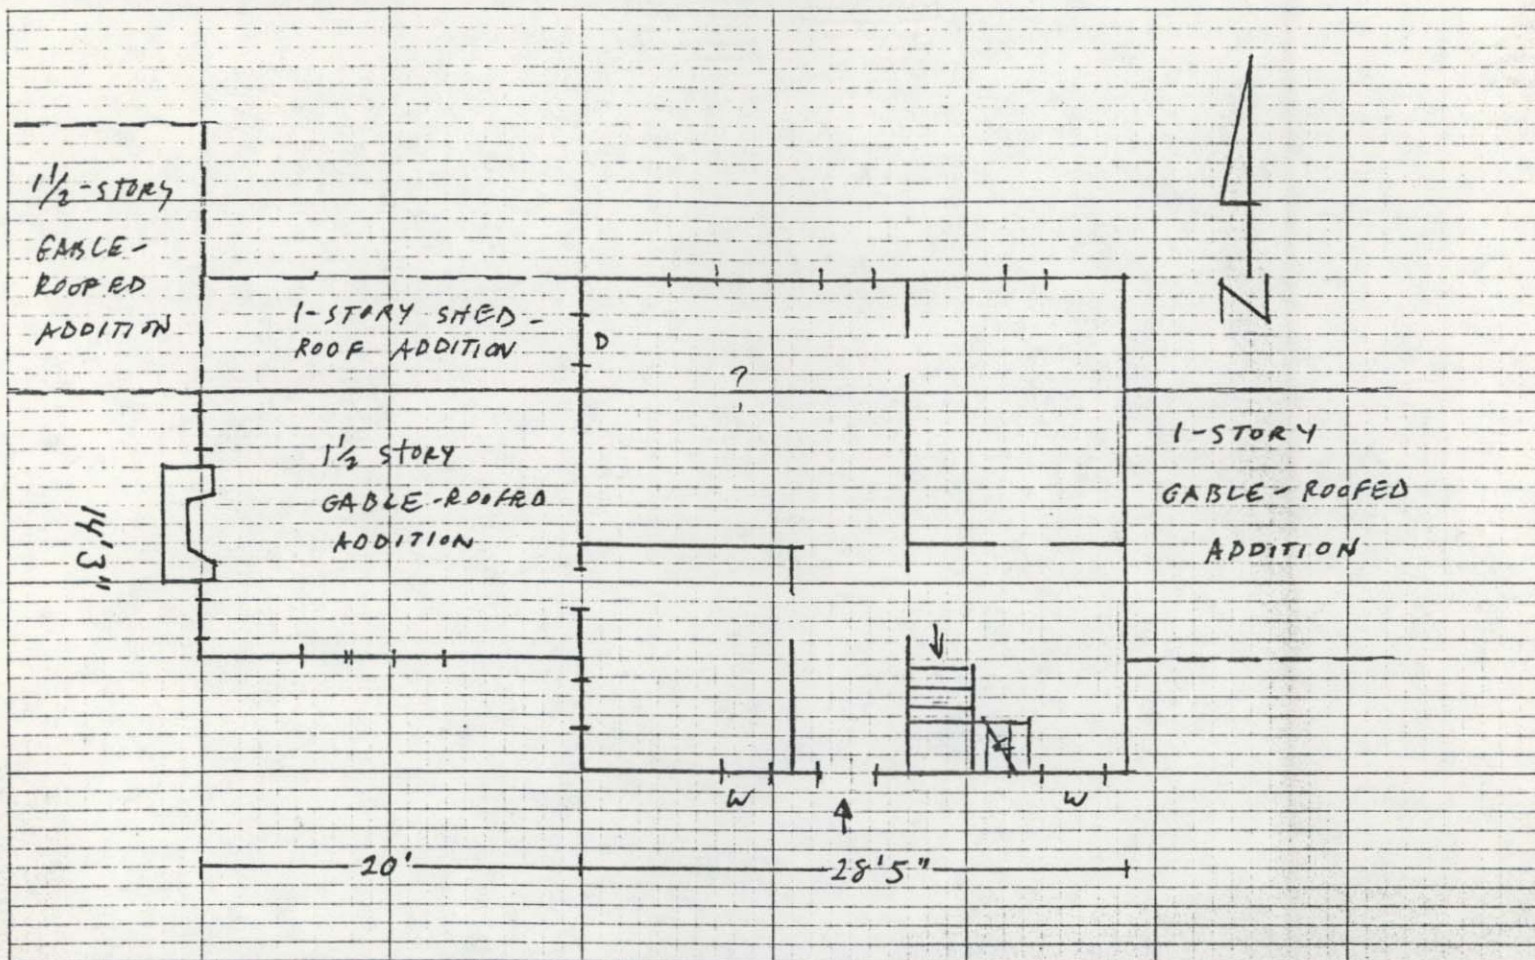 1 1/2-STORY
GABLE-
ROOFED
ADDITION
1-STORY SHED-
ROOF ADDITION
D
?
1 1/2 STORY
GABLE-ROOFED
ADDITION
14'3"
1-STORY
GABLE-ROOFED
ADDITION
N
W
W
20'
28'5"